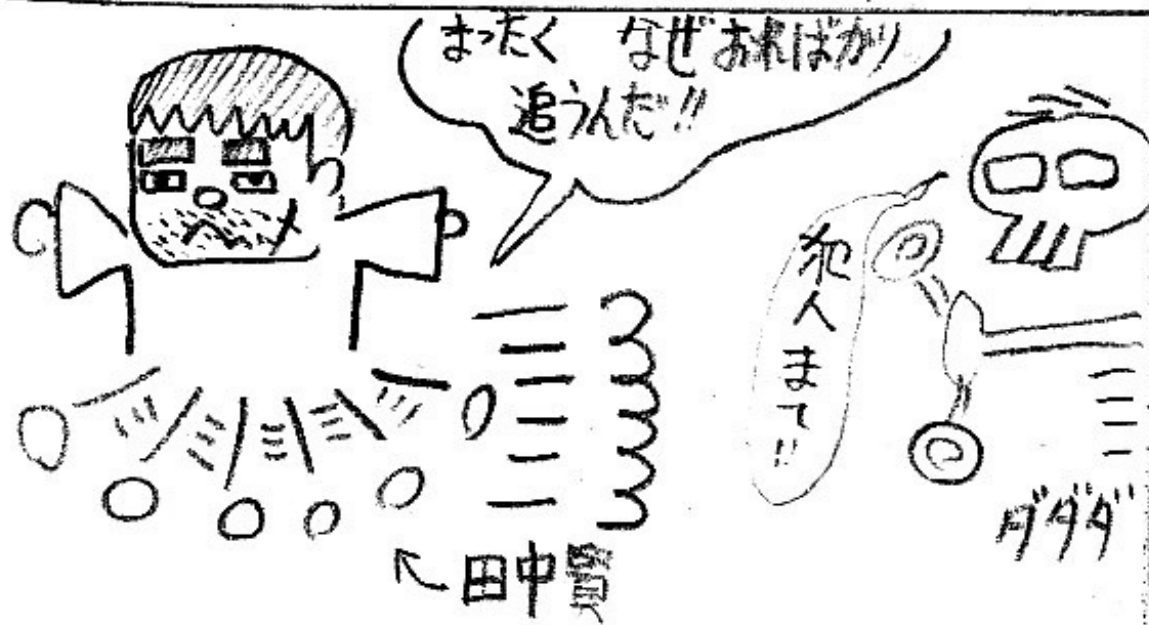 まったく なぜおればかり
追うんだ!!
犯人まて!!
ダダダ
田中